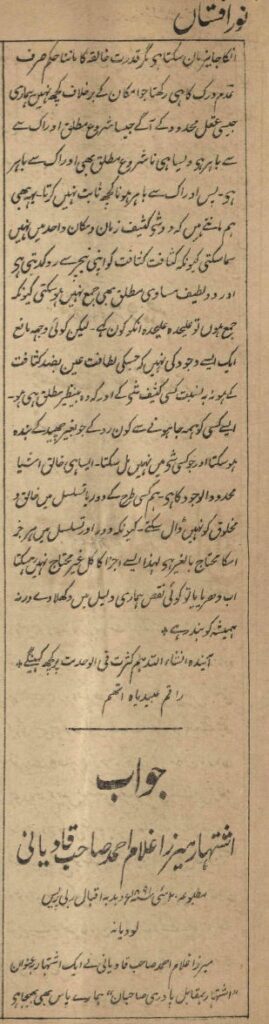 نور افشاں
انکا جایز مان سکتا ہو مگر قدرت خالقہ کا ماننا حکم صرف
قدم درک کا ہی رکھتا جو امکان کے برخلاف کچھ نہیں ہماری
جیسی عقل محدود کے آگے جیسا شروع مطلق ادراک سے
سے باہر ہو ویسا ہی نا شروع مطلق بھی ادراک سے باہر
ہو۔ پس ادراک سے باہر ہونا کچھ ثابت نہیں کرتا۔ یہ بھی
ہم مانتے ہیں کہ دو شی کثیف زمان و مکان واحد میں نہیں
سما سکتی کیونکہ کثافت کثافت کو اپنی نیچر سے روک دیتی ہو
اور دو لطیف مساوی مطلق بھی جمع نہیں ہو سکتی کیونکہ
جمع ہوں تو علیحدہ علیحدہ انکو کون کہے۔ لیکن کوئی وجہ مانع
ایک ایسے وجود کی نہیں کہ جسکی لطافت عین بضد کثافت
کے ہو نہ بہ نسبت کسی کثیف شی کے اور گہ وہ بینظیر مطلق ہی ہو۔
ایسے کسی کو ہمہ جا ہونے سے کون روکے جو بغیر بھید کے بندہ
ہو سکتا اور جو کسی شی میں نہیں مل سکتا۔ ایسا ہی خالق اشیا
محدود الوجود کا ہو۔ ہم کسی طرح کے دور یا تسلسل میں خالق و
مخلوق کو نہیں ڈال سکتے۔ کیونکہ دور اور تسلسل میں ہر جز
اسکا محتاج بالغیر ہو لہذا ایسے اجزا کا کل غیر محتاج نہیں ہو سکتا
اب دھر پایا تو کوئی نقص ہماری دلیل میں دکھلاوے ورنہ
ہمیشہ کو بند رہے ٭
آیندہ انشاء اللہ ہم کثرت فی الوحدت پر کچھ کہینگے ٭
راقم عبد اللہ آتھم
جواب
اشتہار میرزا غلام احمد صاحب قادیانی
مطبوعہ ۲۰ مئی ۱۸۹۱ء دبدبہ اقبال ربی پریس
لودیانہ
میرزا غلام احمد صاحب قادیانی نے ایک اشتہار بعنوان
"اشتہار بمقابل پادری صاحبان" ہمارے پاس بھی بھیجا ہو